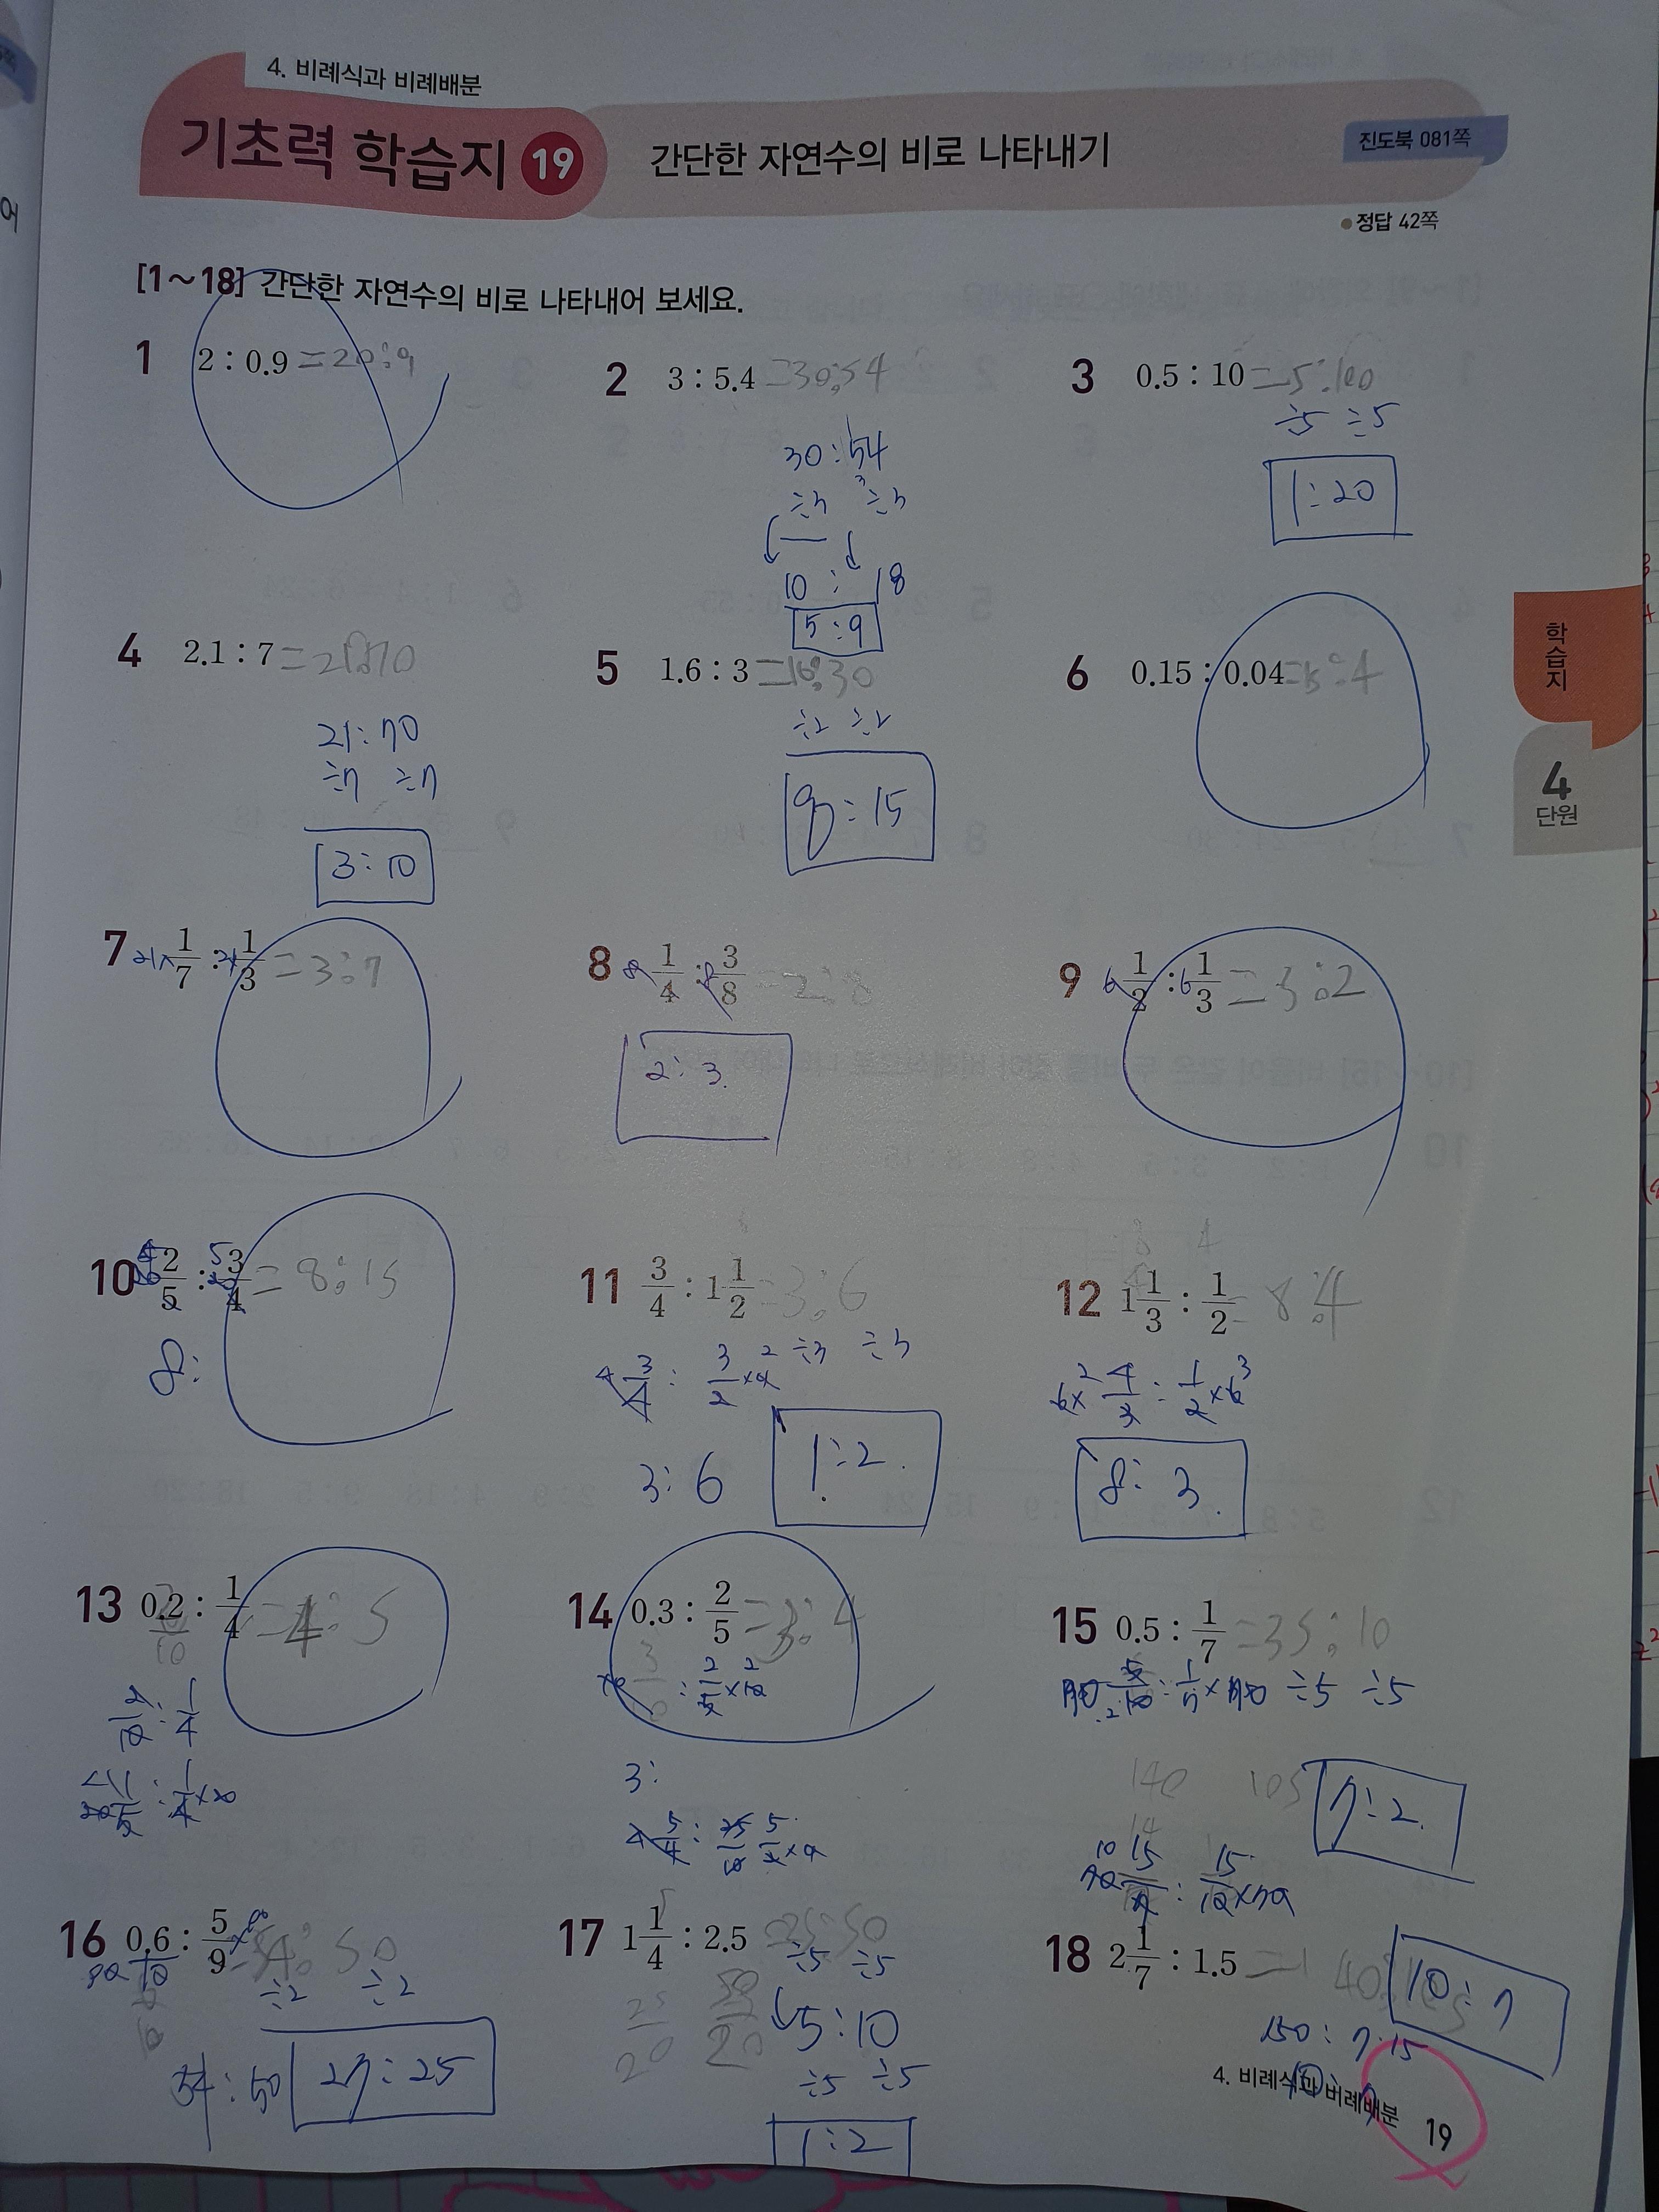 4. 비례식과 비례배분
기초력 학습지 19
간단한 자연수의 비로 나타내기
진도북 081쪽
정답 42쪽
[1~18] 간단한 자연수의 비로 나타내어 보세요.
1 2 : 0.9 = 20:9
2 3 : 5.4 = 30:54
30:54
÷3 ÷3
10 : 18
5:9
3 0.5 : 10 = 5:100
÷5 ÷5
1:20
4 2.1 : 7 = 21:70
21:70
÷7 ÷7
3:10
5 1.6 : 3 = 16:30
÷2 ÷2
8:15
6 0.15 : 0.04 = 15:4
7 21× 1/7 : 21 1/3 = 3:7
8 8 1/4 : 8 3/8 = 2:8
2:3
9 6 1/2 : 6 1/3 = 3:2
10 2/5 : 3/4 = 8:15
8:
11 3/4 : 1 1/2 = 3:6
4 3/4 : 3/2 ×4 2 ÷3 ÷3
3:6 1:2
12 1 1/3 : 1/2 = 8:4
6× 2 4/3 : 1/2 ×6 3
8:3
13 0.2 : 1/4 = 4:5
2/10 : 1/4
1/5 : 1/4 ×20
14 0.3 : 2/5 = 3:4
3/10 : 2/5 ×10 2
3:
15 0.5 : 1/7 = 35:10
5/10 : 1/7 ÷5 ÷5
140 105
7:2
16 0.6 : 5/9 = 54:50
÷2 ÷2
54:50 27:25
4 5/4 : 25/10 5/2 ×4
17 1 1/4 : 2.5 = 25:50
÷5 ÷5
25/20 50/20 5:10
÷5 ÷5
1:2
10 15
70 15/7 : 15/10 ×70
18 2 1/7 : 1.5 =
10:7
150 : 7·15
학습지
4
단원
4. 비례식과 비례배분
19